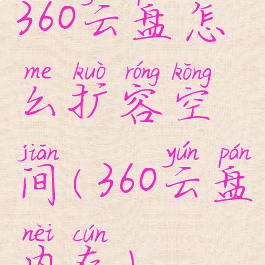 360云盘怎
me kuò róng kōng
么扩容空
jiān yún pán
间(360云盘
nèi cún
内存)